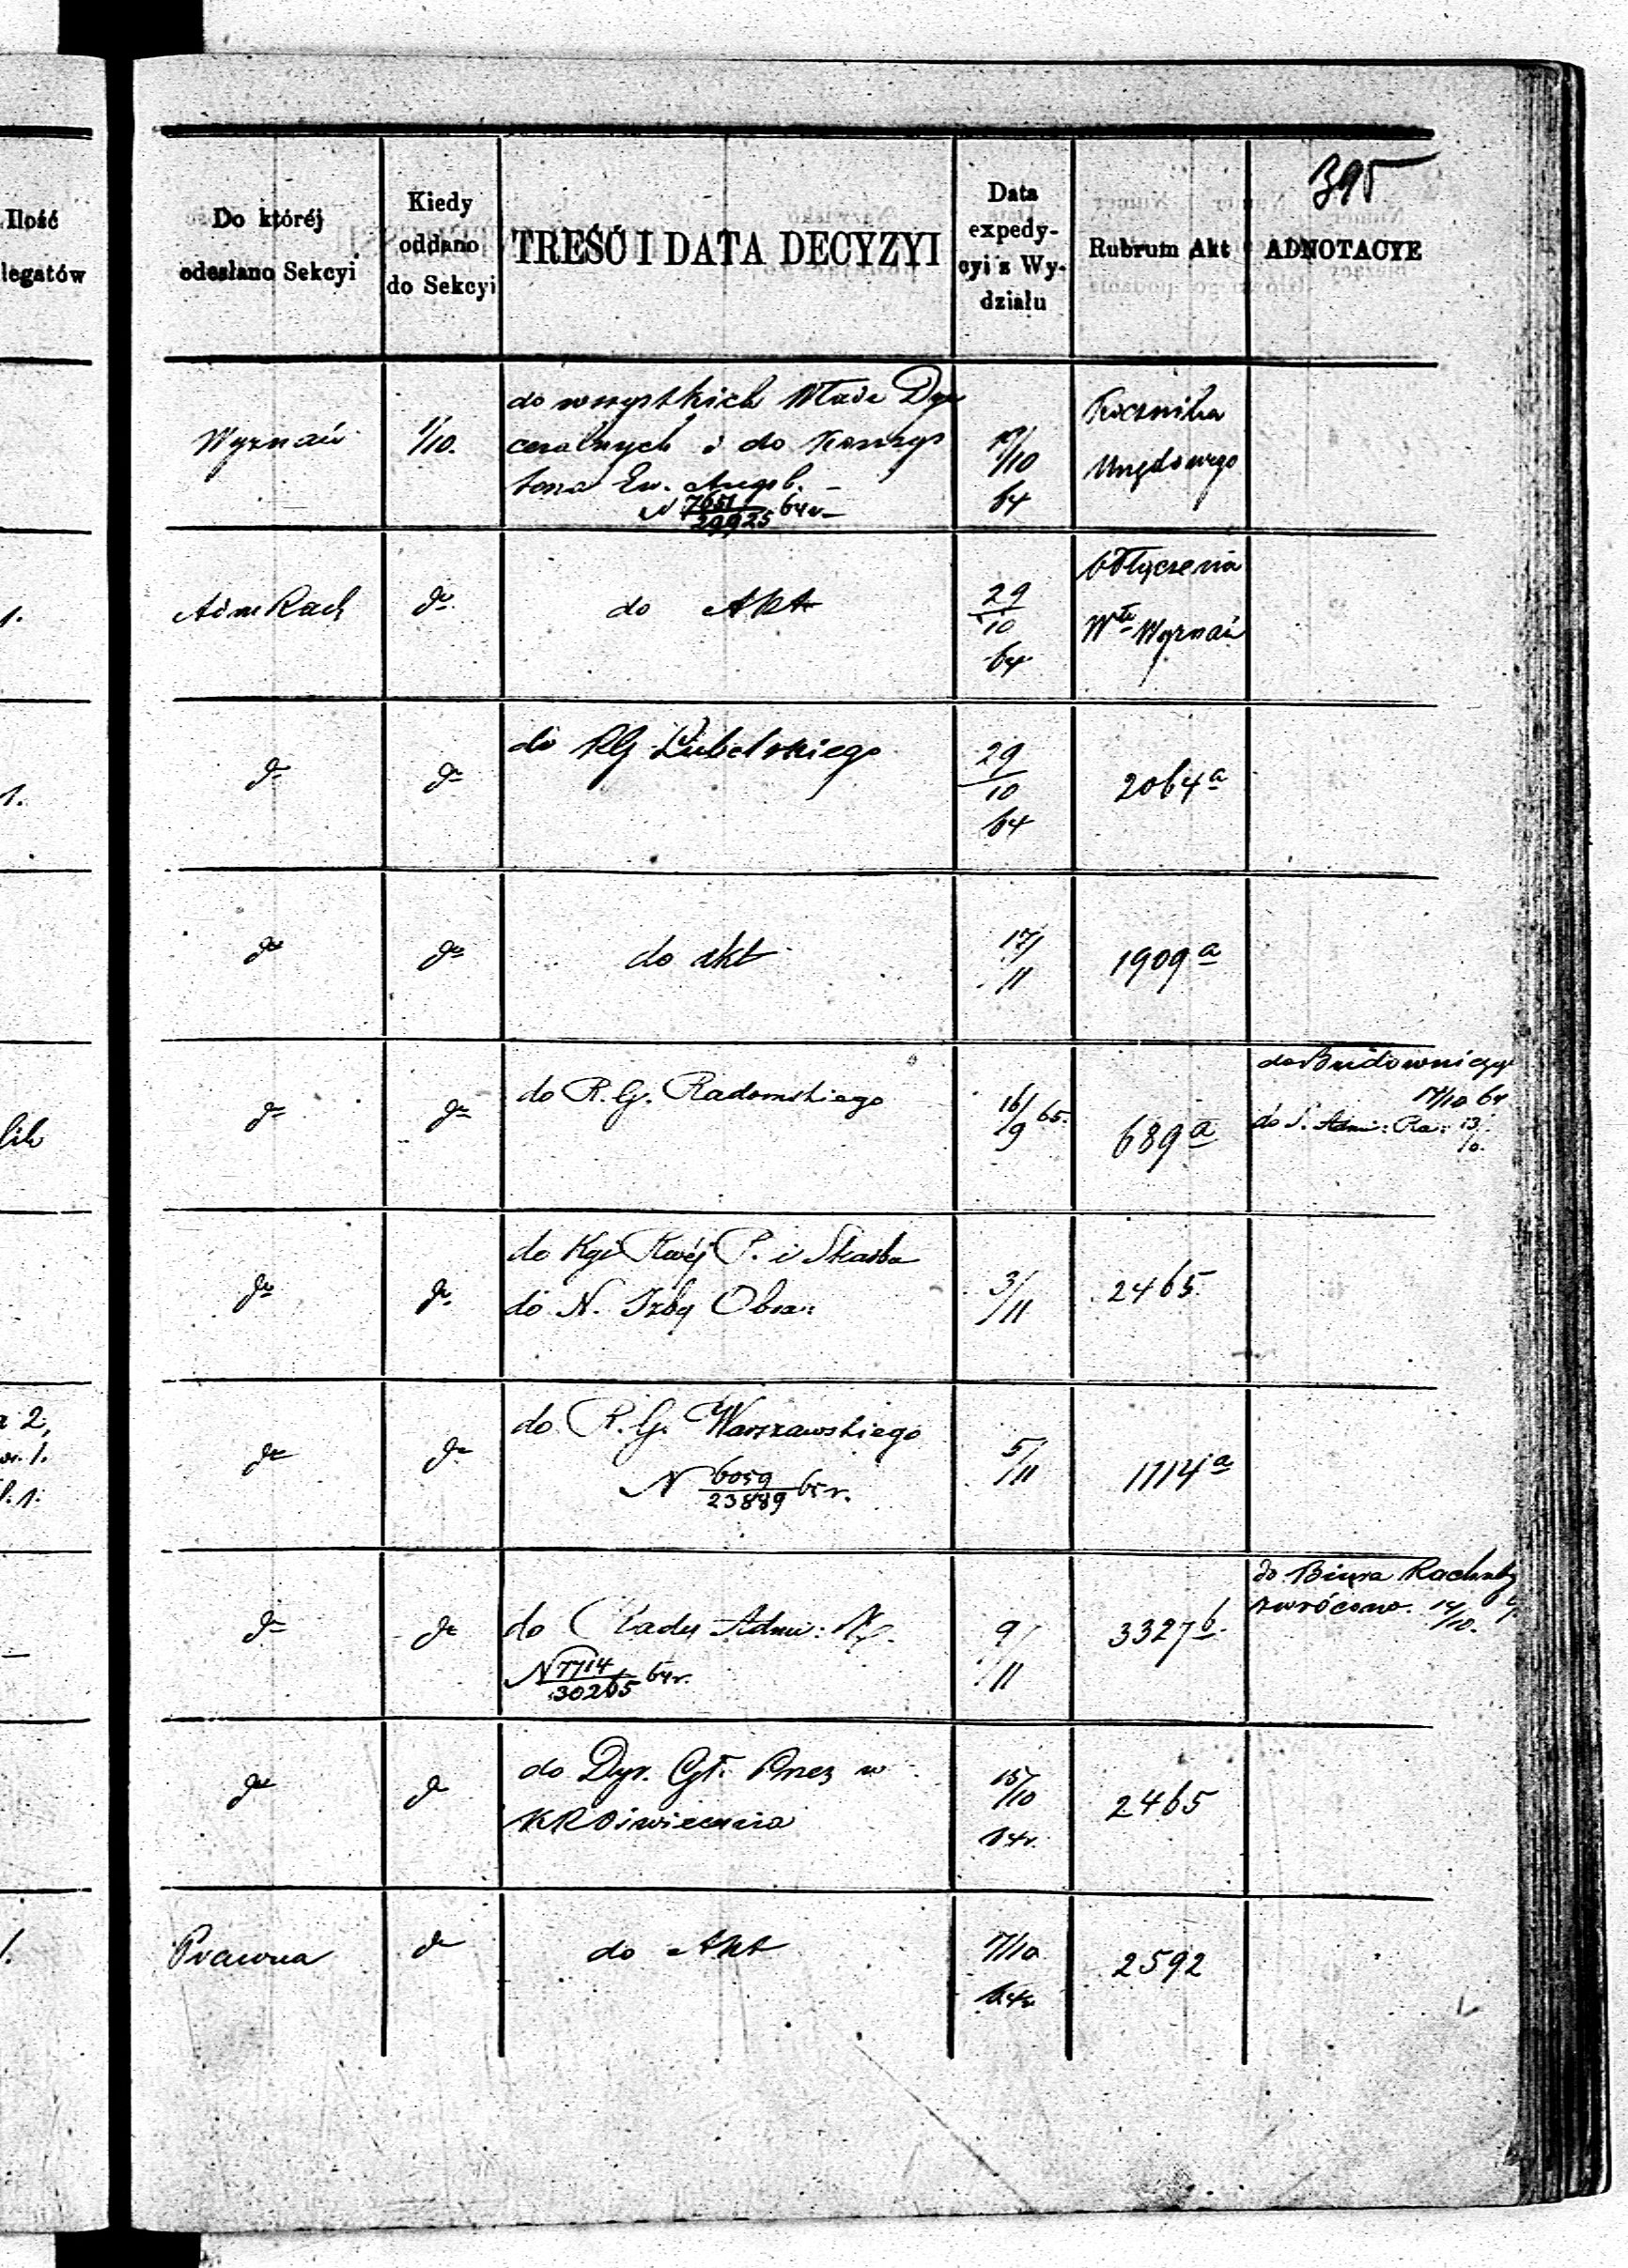 395
Ilość
legatów
Do któréj
odesłano Sekcyi
Kiedy
oddano
do Sekcyi
TREŚĆ I DATA DECYZYI
Data
expedy-
cyi z Wy-
działu
Rubrum Akt
ADNOTACYE
Wyznań
1/10.
do wszystkich Władz Dye
cezalnych i do Konsys
torza Ew. Augsb.
N 7651/29925 64 r.
17/10
64
Rocznika
Urzędowego
1.
Adm Rach
do
do Akt
29/10
64
Wyznań
1.
do
do
do RG Lubelskiego
29/10
64
2064 a
do
do
do akt
17/11
1909 a
do
do
do R. G. Radomskiego
16/9 65.
689 a
do Budowniczego
17/10 64
do S. Adm: Ra: 13/10.
do
do
do Kgi Rwéj P. i Skarbu
do N. Izby Obra:
3/11
2465
a 2,
1.
1.
do
do
do R. G. Warszawskiego
N 6059/23889 65 r.
5/11
1114 a
do
do
do Rady Adm: Kr.
N 7714/30265 64 r.
9/11
3327 b.
do Biura Rachuby
zwrócono. 14/10.
do
do
do Dyr. Gł. Prez w
KR Oświecenia
15/10
64 r.
2465
1.
Prawna
do
do Akt
7/10
64 r
2592